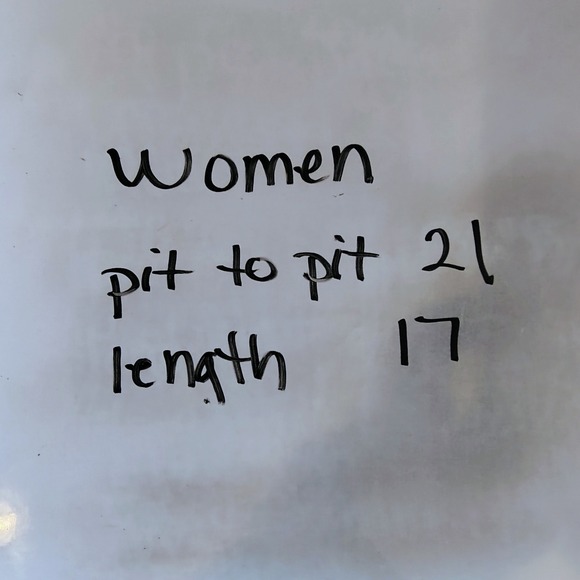 Women
pit to pit 21
length 17